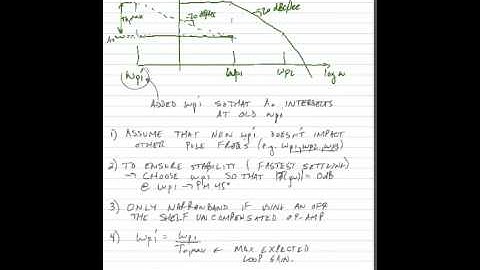 -20 dB/dec
-20 dBc/dec
Topmax
Ao
wpi'
wpi
wp2
log w
ADDED wpi' SO THAT Ao INTERSECTS
AT OLD wpi
1) ASSUME THAT NEW wpi' DOESN'T IMPACT
OTHER POLE FREQS (e.g. wp1, wp2, wp3)
2) TO ENSURE STABILITY (FASTEST SETTLING)
→ CHOOSE wpi' SO THAT |T(jw)| = 0dB
@ wpi → PM 45°
3) ONLY NARROWBAND IF USING AN OFF
THE SHELF UNCOMPENSATED OP-AMP
4) wpi' = wpi
Topmax ← MAX EXPECTED
LOOP GAIN.